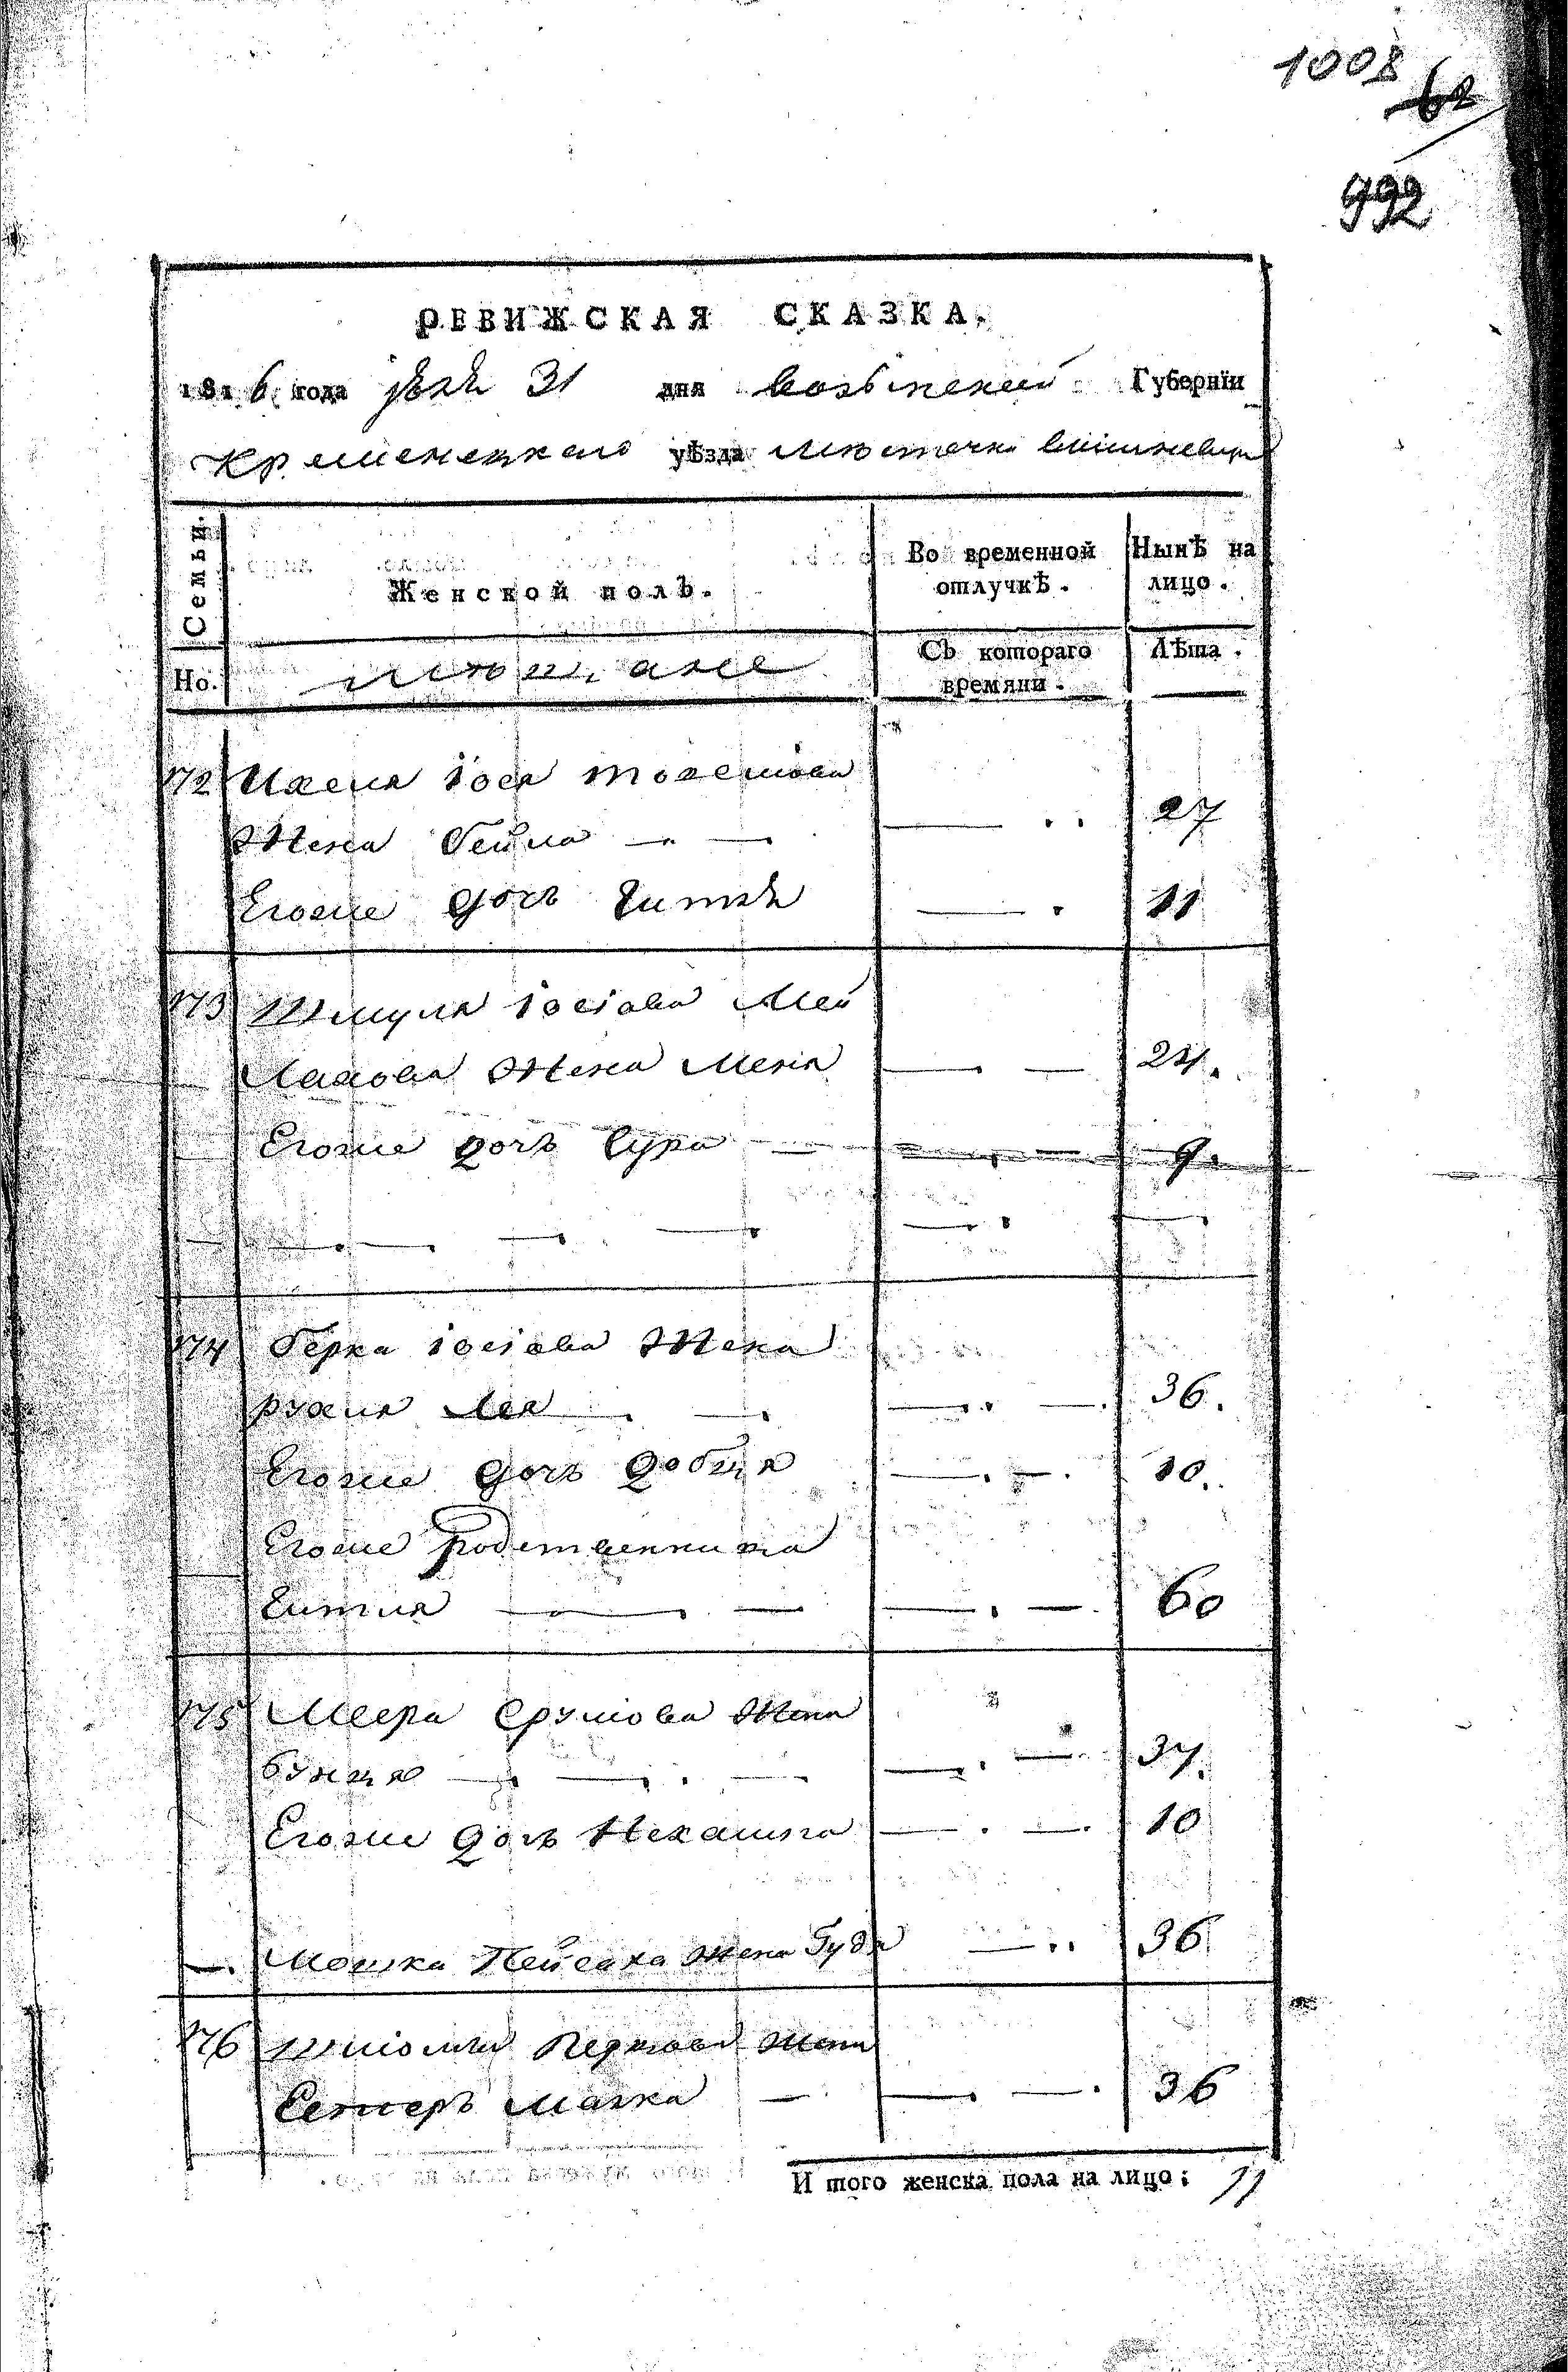 1008
62
992
РЕВИЖСКАЯ СКАЗКА.
1816 года 31 дня волынской Губернїи
Кременецкаго уѣзда местечка вишневца
Семьи. Женской полъ. Во временной отлучкѣ. Нынѣ на лицо.
Но. мещане Съ котораго времяни. Лѣта.
172 Ихеля іося
Жена Бейла 27
Егоже дочь 11
173 Шмуля іосiова Мей
Лахова Жена Меня 24.
Егоже дочь Сура 9.
174 Берка іосiова Жена
рухля Лея 36.
Егоже дочь добця 10.
Егоже родственница
Гитля 60
175 Меера Срулiова Жена
бунця 37.
Егоже дочь Нехамка 10
Мошка Пейсаха Жена Гудя 36
176 Шліомы жена
Естеръ Малка 36
И того женска пола на лицо: 11